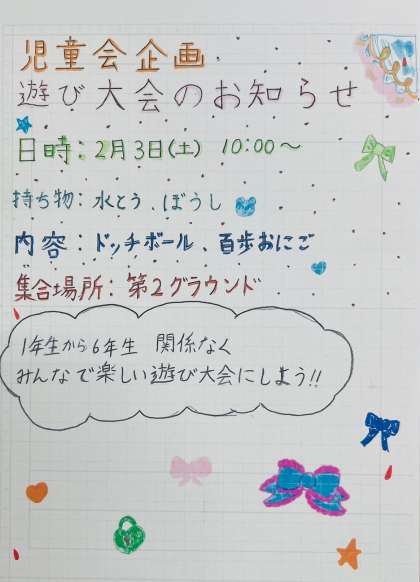 児童会企画
遊び大会のお知らせ
日時：2月3日(土) 10:00～
持ち物：水とう、ぼうし
内容：ドッチボール、百歩おにご
集合場所：第2グラウンド
1年生から6年生 関係なく
みんなで楽しい遊び大会にしよう!!